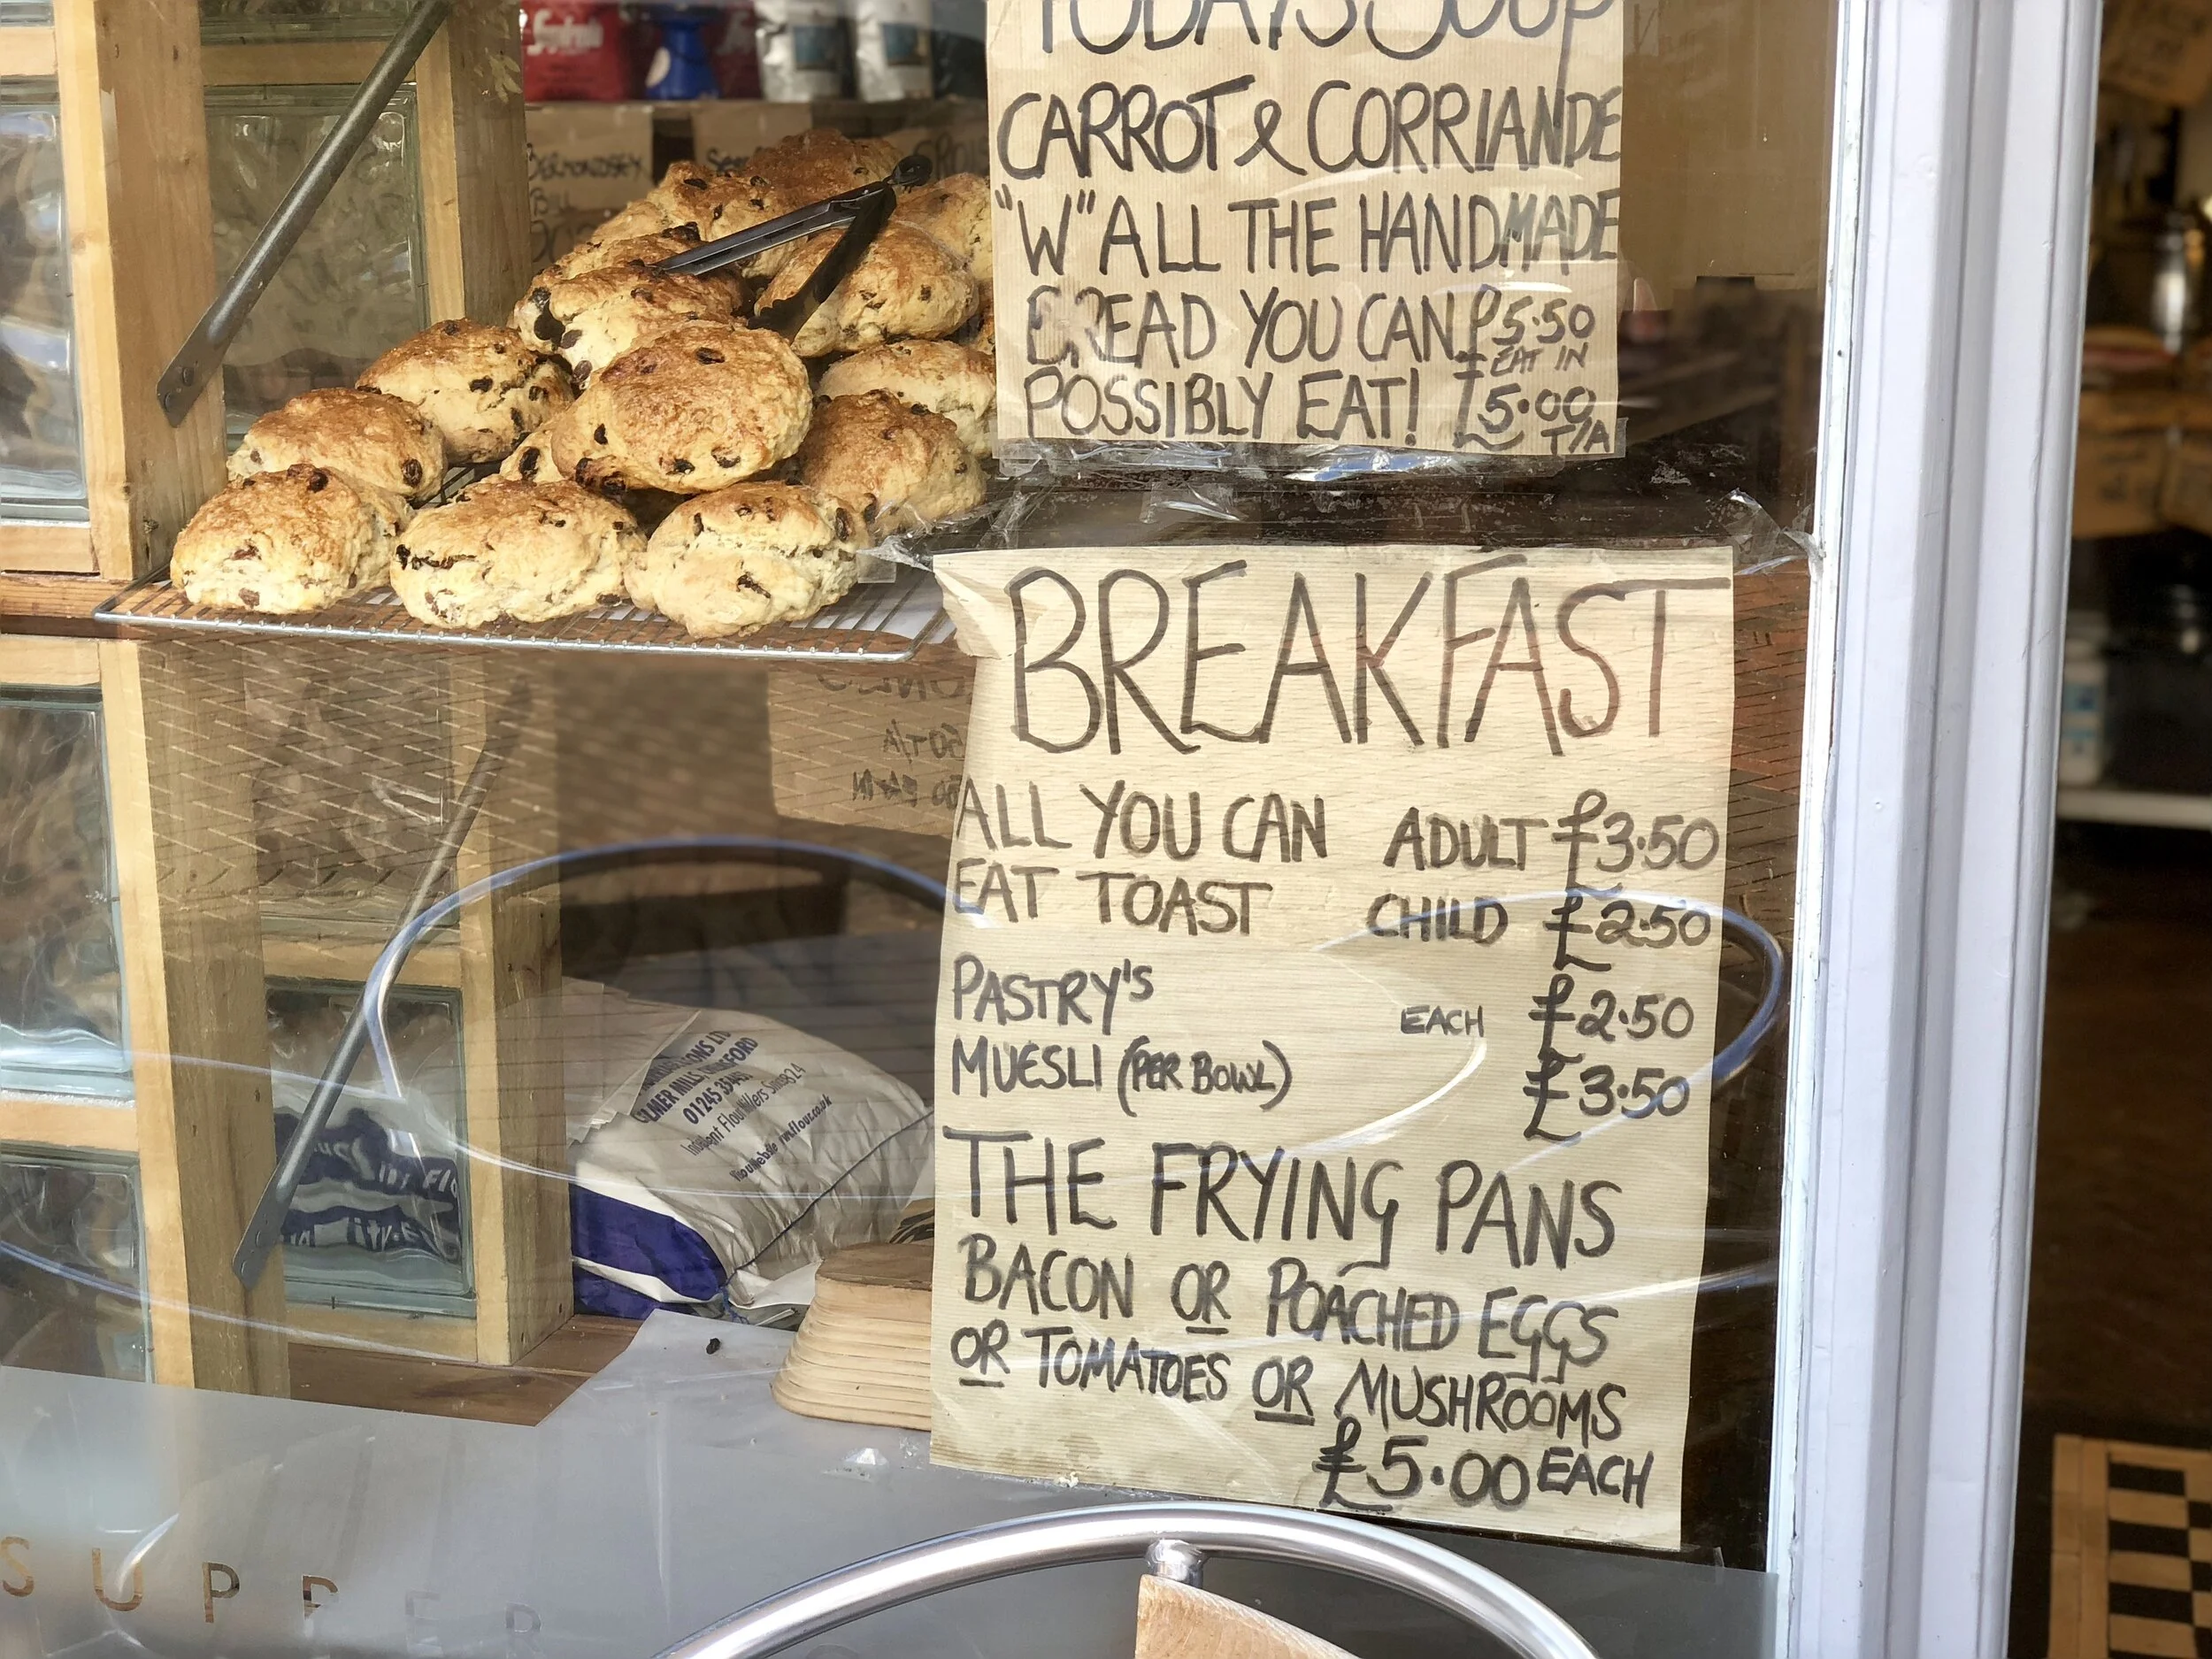 TODAYS SOUP
CARROT & CORRIANDE
"W" ALL THE HANDMADE
BREAD YOU CAN £5.50
EAT IN
POSSIBLY EAT! £5.00
T/A
BERMONDSEY
BREAKFAST
ALL YOU CAN ADULT £3.50
EAT TOAST CHILD £2.50
PASTRY'S EACH £2.50
MUESLI (PER BOWL) £3.50
THE FRYING PANS
BACON OR POACHED EGGS
OR TOMATOES OR MUSHROOMS
£5.00 EACH
SUPPER